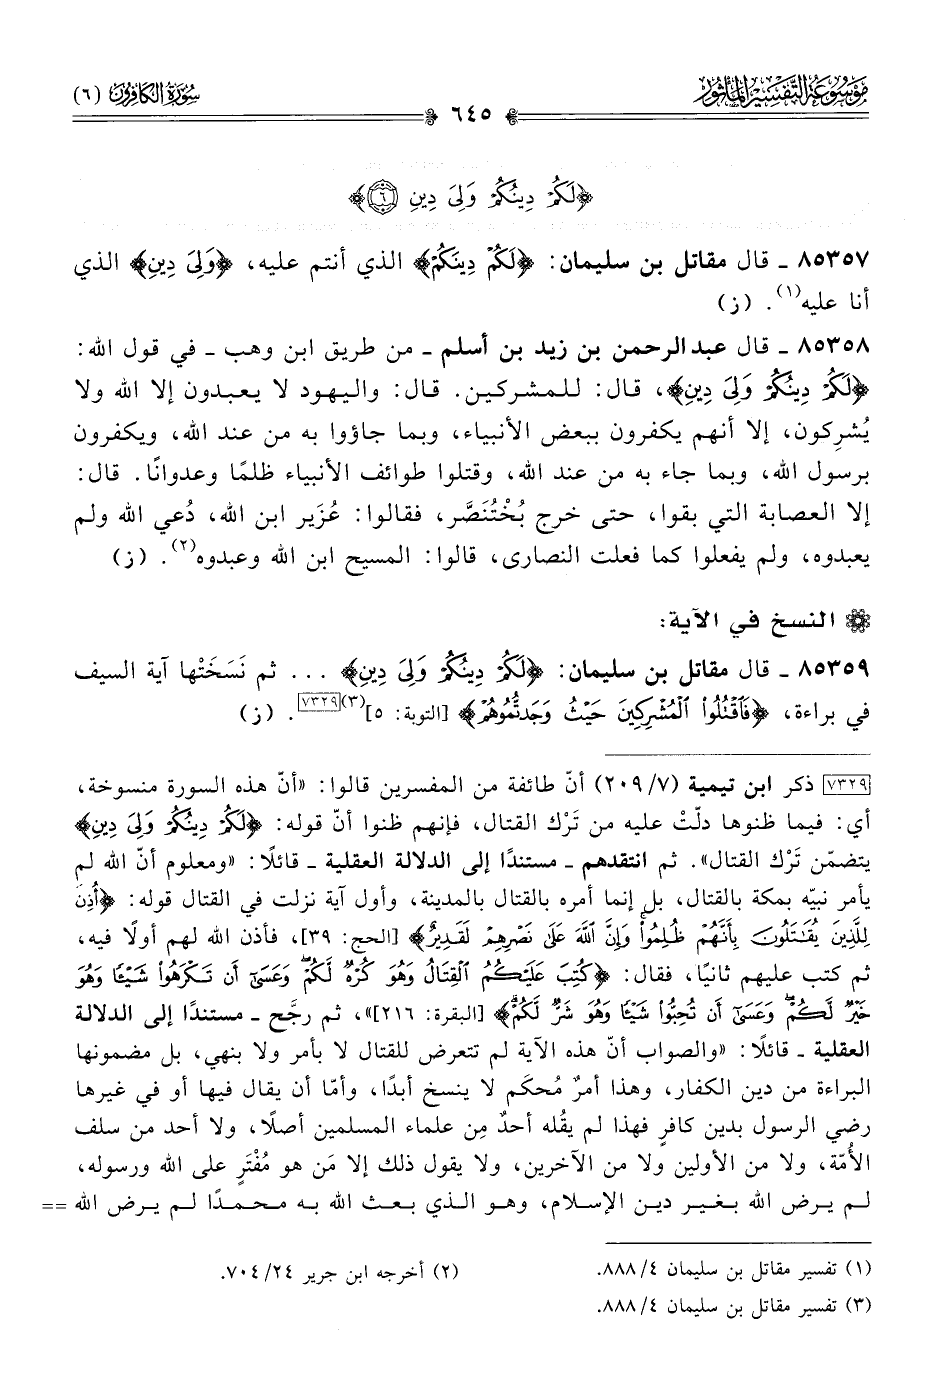 موسوعة التفسير المأثور
سورة الكافرون (٦)
٦٤٥
﴿لَكُمْ دِينُكُمْ وَلِيَ دِينِ ۝٦﴾
٨٥٣٥٧ ـ قال مقاتل بن سليمان: ﴿لَكُمْ دِينُكُمْ﴾ الذي أنتم عليه، ﴿وَلِيَ دِينِ﴾ الذي
أنا عليه(١). (ز)
٨٥٣٥٨ ـ قال عبد الرحمن بن زيد بن أسلم ـ من طريق ابن وهب ـ في قول الله:
﴿لَكُمْ دِينُكُمْ وَلِيَ دِينِ﴾، قال: للمشركين. قال: واليهود لا يعبدون إلا الله ولا
يُشرِكون، إلا أنهم يكفرون ببعض الأنبياء، وبما جاؤوا به من عند الله، ويكفرون
برسول الله، وبما جاء به من عند الله، وقتلوا طوائف الأنبياء ظلمًا وعدوانًا. قال:
إلا العصابة التي بقوا، حتى خرج بُخْتُنَصَّر، فقالوا: عُزَير ابن الله، دُعي الله ولم
يعبدوه، ولم يفعلوا كما فعلت النصارى، قالوا: المسيح ابن الله وعبدوه(٢). (ز)
النسخ في الآية:
٨٥٣٥٩ ـ قال مقاتل بن سليمان: ﴿لَكُمْ دِينُكُمْ وَلِيَ دِينِ﴾ ... ثم نَسَخَتْها آية السيف
في براءة، ﴿فَاقْتُلُوا الْمُشْرِكِينَ حَيْثُ وَجَدْتُمُوهُمْ﴾ [التوبة: ٥](٣)[٧٣٢٩]. (ز)
[٧٣٢٩] ذكر ابن تيمية (٧/ ٢٠٩) أنّ طائفة من المفسرين قالوا: «أنّ هذه السورة منسوخة،
أي: فيما ظنوها دلّتْ عليه من تَرْك القتال، فإنهم ظنوا أنّ قوله: ﴿لَكُمْ دِينُكُمْ وَلِيَ دِينِ﴾
يتضمّن تَرْك القتال». ثم انتقدهم ـ مستندًا إلى الدلالة العقلية ـ قائلًا: «ومعلوم أنّ الله لم
يأمر نبيّه بمكة بالقتال، بل إنما أمره بالقتال بالمدينة، وأول آية نزلت في القتال قوله: ﴿أُذِنَ
لِلَّذِينَ يُقَاتَلُونَ بِأَنَّهُمْ ظُلِمُوا وَإِنَّ اللَّهَ عَلَى نَصْرِهِمْ لَقَدِيرٌ﴾ [الحج: ٣٩]، فأذن الله لهم أولًا فيه،
ثم كتب عليهم ثانيًا، فقال: ﴿كُتِبَ عَلَيْكُمُ الْقِتَالُ وَهُوَ كُرْهٌ لَكُمْ وَعَسَى أَنْ تَكْرَهُوا شَيْئًا وَهُوَ
خَيْرٌ لَكُمْ وَعَسَى أَنْ تُحِبُّوا شَيْئًا وَهُوَ شَرٌّ لَكُمْ﴾ [البقرة: ٢١٦]»، ثم رجَّح ـ مستندًا إلى الدلالة
العقلية ـ قائلًا: «والصواب أنّ هذه الآية لم تتعرض للقتال لا بأمر ولا بنهي، بل مضمونها
البراءة من دين الكفار، وهذا أمرٌ مُحكَم لا ينسخ أبدًا، وأمّا أن يقال فيها أو في غيرها
رضي الرسول بدين كافرٍ فهذا لم يقُله أحدٌ مِن علماء المسلمين أصلًا، ولا أحد من سلف
الأُمّة، ولا من الأولين ولا من الآخرين، ولا يقول ذلك إلا مَن هو مُفْتَرٍ على الله ورسوله،
لم يرض الله بغير دين الإسلام، وهو الذي بعث الله به محمدًا لم يرض الله ==
(١) تفسير مقاتل بن سليمان ٤/ ٨٨٨.
(٢) أخرجه ابن جرير ٢٤/ ٧٠٤.
(٣) تفسير مقاتل بن سليمان ٤/ ٨٨٨.